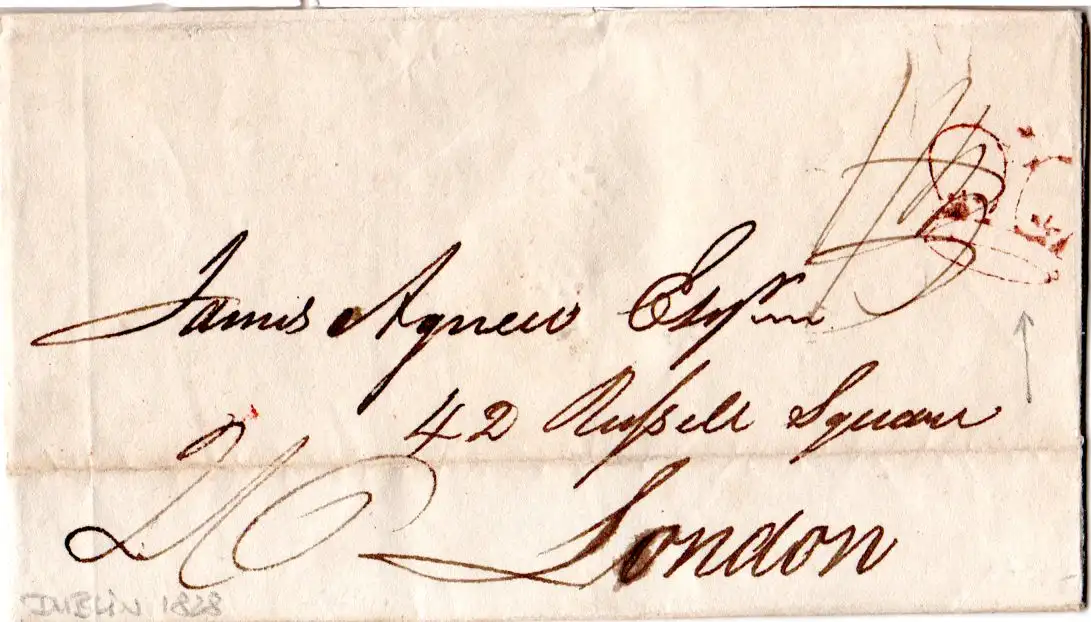 James Agnew Esqr
42 Russell Square
London
DUBLIN 1828